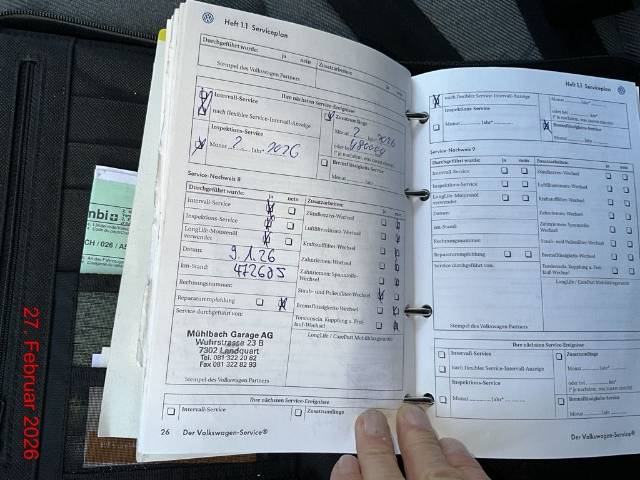 Heft 1.1 Serviceplan
Durchgeführt wurde: ja nein Zusatzarbeiten:
Stempel des Volkswagen Partners
Ihre nächsten Service-Ereignisse
Intervall-Service
nach flexibler Service-Intervall-Anzeige
Inspektions-Service
Monat 2 Jahr* 2026
Zusatzumfänge
Monat 2 Jahr* 2026
Bremsflüssigkeits-Service
Service-Nachweis 8
Durchgeführt wurde: ja nein Zusatzarbeiten: ja nein
Intervall-Service
Inspektions-Service
LongLife-Motorenöl verwendet
Datum: 9.1.26
km-Stand:
Rechnungsnummer:
Reparaturempfehlung
Service durchgeführt von:
Zündkerzen-Wechsel
Luftfiltereinsatz-Wechsel
Kraftstofffilter-Wechsel
Zahnriemen-Wechsel
Staub- und Pollenfilter-Wechsel
Bremsflüssigkeits-Wechsel
LongLife / CarePort Mobilitätsgarantie
Mühlbach Garage AG
Wuhrstrasse 23 B
7302 Landquart
Tel. 081 322 20 82
Fax 081 322 82 93
Stempel des Volkswagen Partners
Ihre nächsten Service-Ereignisse
Intervall-Service Zusatzumfänge
26 Der Volkswagen-Service®
Heft 1.1 Serviceplan
nach flexibler Service-Intervall-Anzeige
Inspektions-Service
Monat Jahr*
Bremsflüssigkeits-Service
Service-Nachweis 9
Durchgeführt wurde: ja nein Zusatzarbeiten: ja nein
Intervall-Service
Inspektions-Service
LongLife-Motorenöl verwendet
Datum:
km-Stand:
Rechnungsnummer:
Reparaturempfehlung
Service durchgeführt von:
Zündkerzen-Wechsel
Luftfiltereinsatz-Wechsel
Kraftstofffilter-Wechsel
Zahnriemen-Wechsel
Staub- und Pollenfilter-Wechsel
Bremsflüssigkeits-Wechsel
Stempel des Volkswagen Partners
Ihre nächsten Service-Ereignisse
Intervall-Service
nach flexibler Service-Intervall-Anzeige
Inspektions-Service
Monat Jahr*
Zusatzumfänge
Bremsflüssigkeits-Service
Der Volkswagen-Service®
nbi
CH / 026 / AS
27. Februar 2026